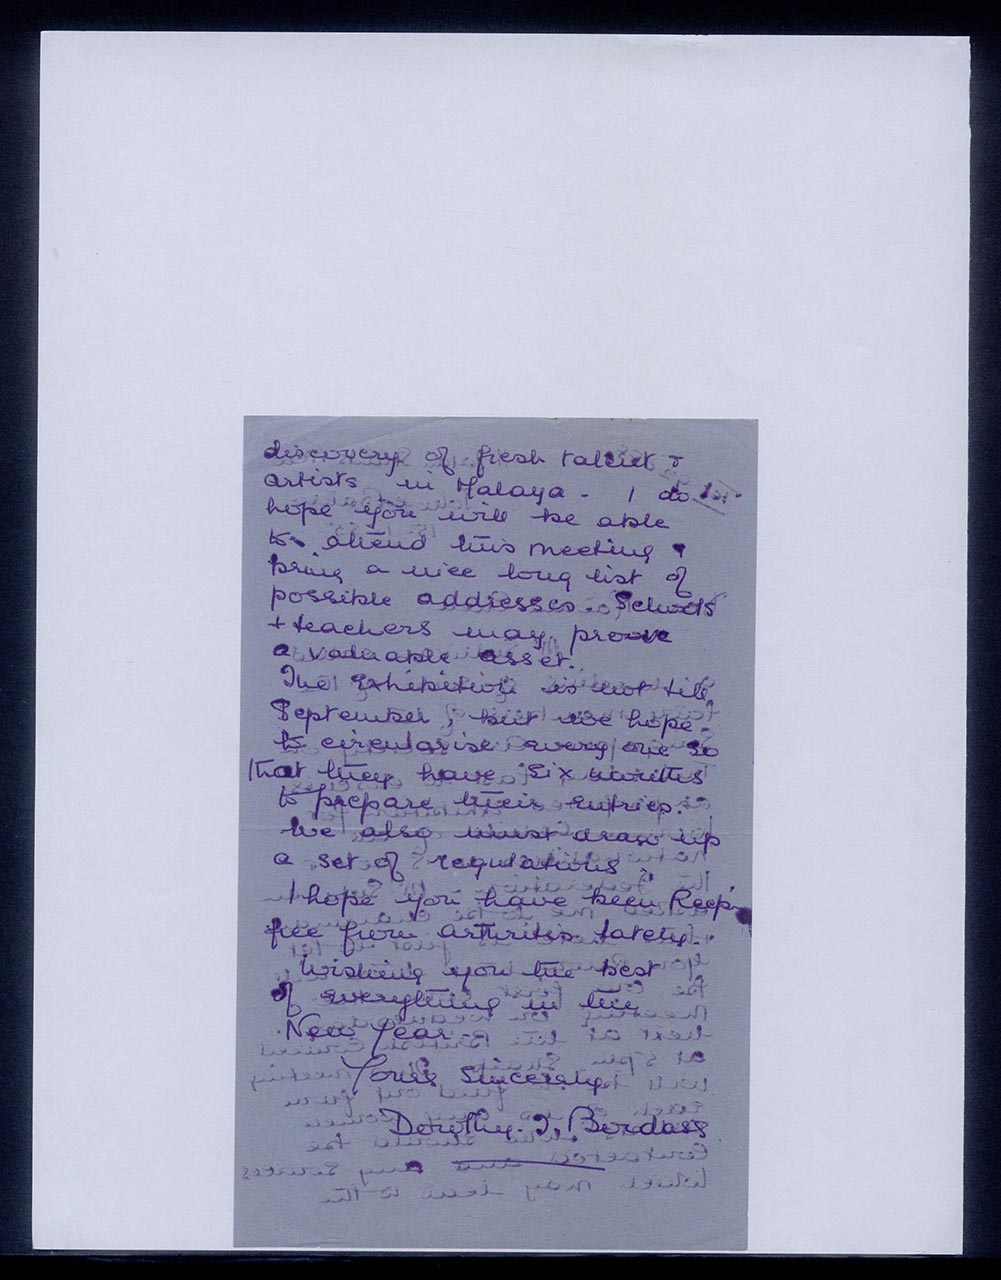 discovery of fresh talent &
artists in Malaya - I do
hope you will be able
to attend this meeting &
bring a nice long list of
possible addresses. Schools
+ teachers may prove
a valuable asset.
The exhibition is not till
September, but we hope
to circularise every one so
that they have six months
to prepare their entries.
We also must draw up
a set of regulations.
I hope you have been keeping
free from arthritis lately.
Wishing you the best
of everything in the
New Year -
Yours Sincerely
Dorothy. I. Bordass